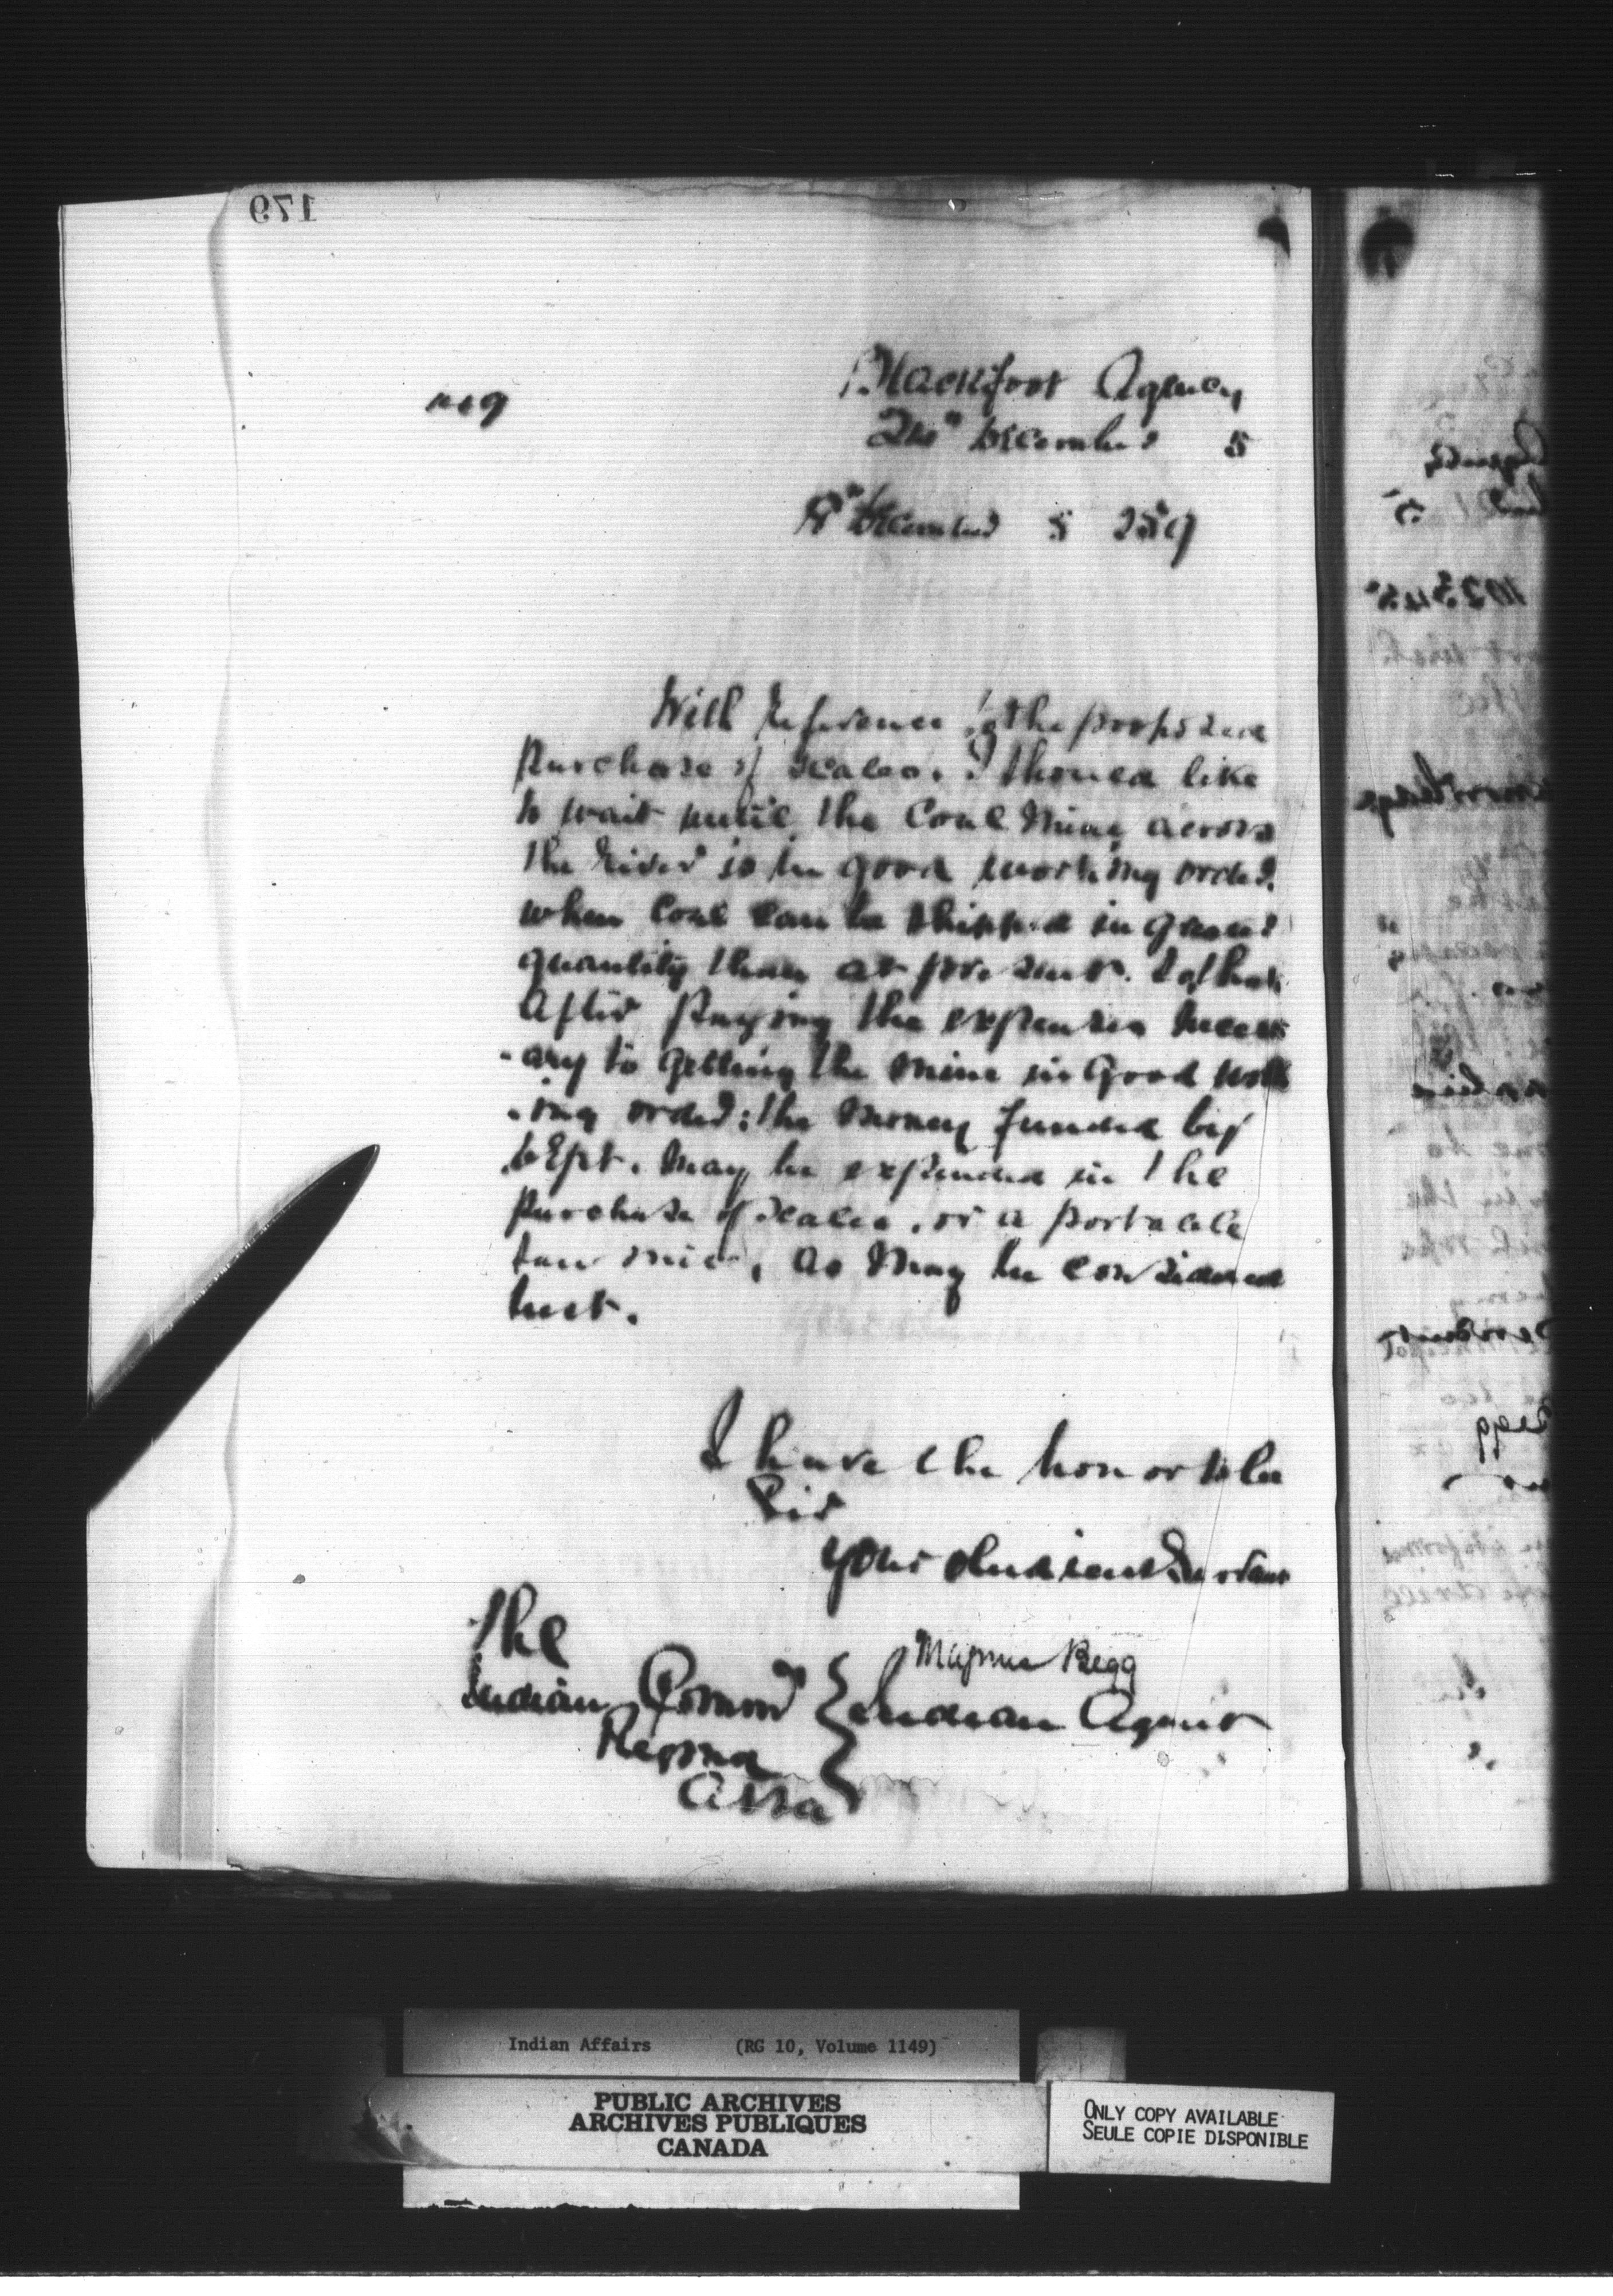 179
Blackfoot Agency
December 5
8th December 5 2519
With reference to the proposed
purchase of scales. I should like
to wait until the Coal Mine across
the river is in good working order.
when coal can be shipped in greater
quantity than at present. So that
after paying the expenses necess
-ary to getting the mine in good work
-ing order: the money funded by
Dept. may be expended in the
purchase of scales, or a portable
saw mill, as may be considered
best.
I have the honor to be
Sir
your obedient Servant
Magnus Begg
The
Indian Commr } Indian Agent
Regina
Assa
Indian Affairs (RG 10, Volume 1149)
PUBLIC ARCHIVES
ARCHIVES PUBLIQUES
CANADA
ONLY COPY AVAILABLE
SEULE COPIE DISPONIBLE